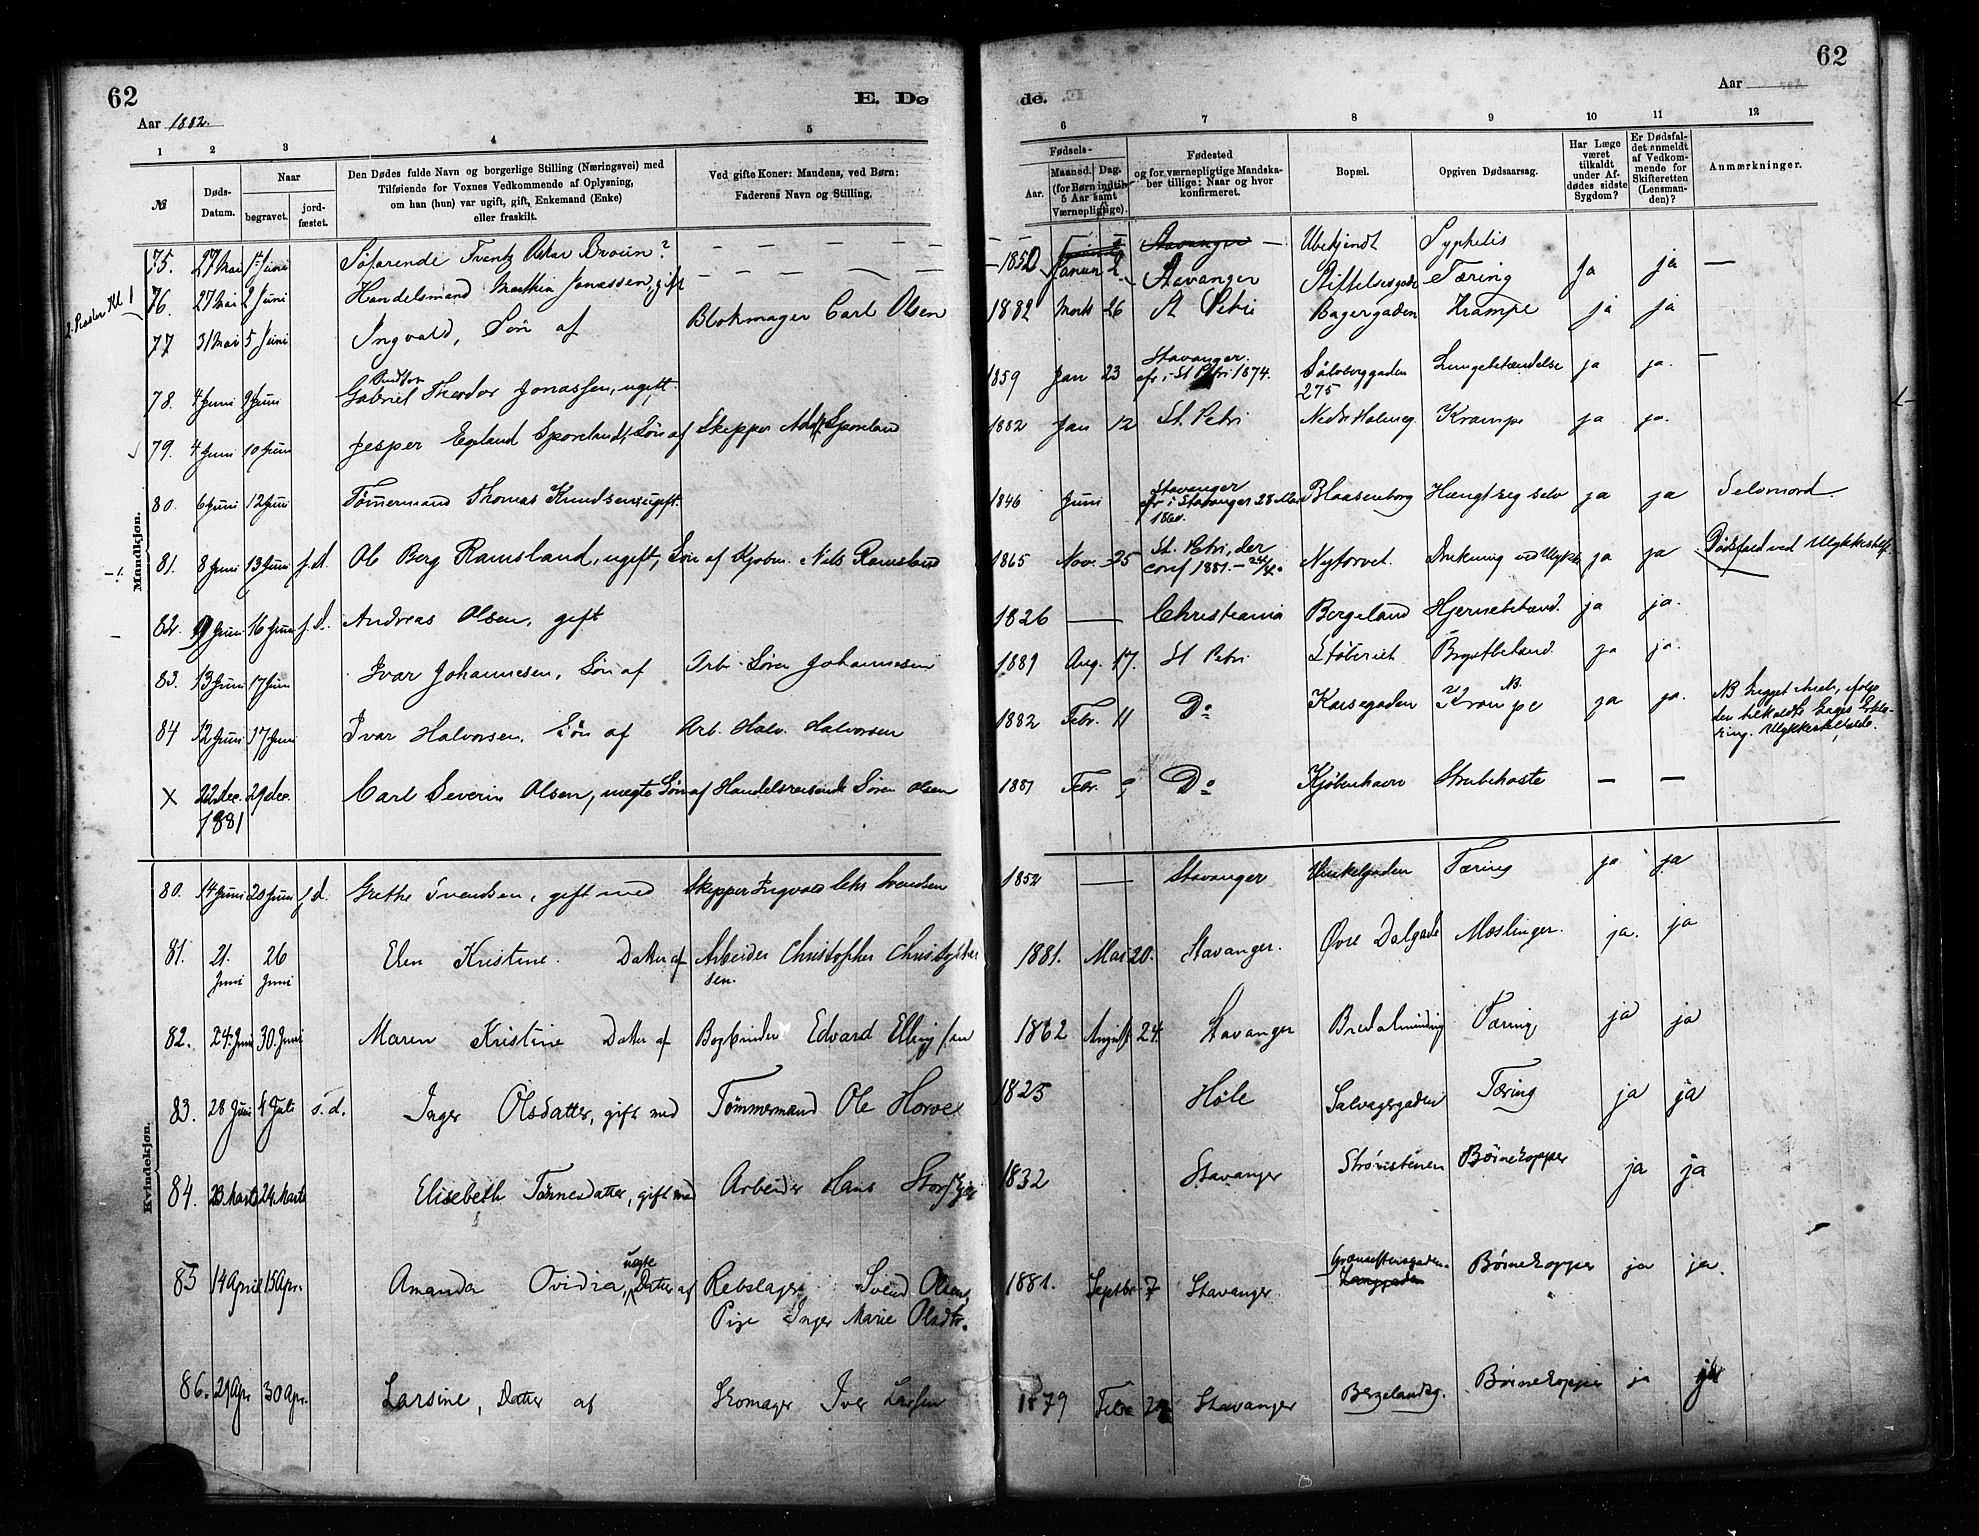 62
E. Dø
Aar 1882.
1 2 3 4 5
№
Døds-
Datum.
Naar
begravet.
jord-
fæstet.
Den Dødes fulde Navn og borgerlige Stilling (Næringsvei) med
Tilføiende for Voxnes Vedkommende af Oplysning,
om han (hun) var ugift, gift, Enkemand (Enke)
eller fraskilt.
Ved gifte Koner: Mandens, ved Børn:
Faderens Navn og Stilling.
2. Præster Kl 1
Mandkjøn.
75. 27 Mai 1ste Juni Søfarende Frantz Oskar Broun? — — — — — — —
76. 27 Mai 2 Juni Handelsmand Mathia Jonassen, gift
77 31 Mai 5 Juni Ingvald, Søn af Blokmager Carl Olsen
78. 4 Juni 9 Juni Gabriel Theodor Jonassen, ugift.
79. 4 Juni 10 Juni Jesper Egeland Sporeland, Søn af Skipper Adolf Sporeland
80. 6 Juni 12 Juni Tømmermand Thomas Knudsen, ugift.
81. 8 Juni 13 Juni s.d. Ole Berg Ramsland, ugift, Søn af Kjøbm. Nils Ramsland
82. Juni 16 Juni s.d. Andreas Olsen, gift
83. 13 Juni 17 Juni Ivar Johannesen, Søn af Arb. Søren Johannesen
84 12 Juni 17 Juni Ivar Halvorsen, Søn af Arb. Halv. Halvorsen
X 22 dec. 29 dec. Carl Severin Olsen, uægte Søn af Handelsreisende Søren Olsen
1881
Kvindekjøn.
80. 14 Juni 20 Juni s.d. Grethe Svendsen, gift med Skipper Ingvald Svendsen
81. 21. 26 Elen Kristine. Datter af Arbeider Christopher Christopher
Juni Juni sen.
82. 24. Juni 30. Juni Maren Kristine Datter af Bogbinder Edvard Ellingsen
83. 28 Juni 4 Juli s.d. Inger Olsdatter, gift med Tømmermand Ole Horve
84. 23 Marts 24 Marts Elisebeth Tønnesdatter, gift med Arbeider Hans
uægte
85 14 April 15 Apr. Amanda Ovidia, Datter af Rebslager Svend Olsen,
Pige Inger Marie Olsdtr.
86. 21 Apr 30 Apr. Larsine, Datter af Skomager Iver Larsen
62
de.
Aar
6 7 8 9 10 11 12
Fødsels-
Aar.
Maaned. Dag.
(for Børn indtil
5 Aar samt
Værnepligtige).
Fødested
og for værnepligtige Mandska-
ber tillige: Naar og hvor
konfirmeret.
Bopæl.
Opgiven Dødsaarsag.
Har Læge
været
tilkaldt
under Af-
dødes sidste
Sygdom?
Er Dødsfal-
det anmeldt
af Vedkom-
mende for
Skifteretten
(Lensman-
den)?
Anmærkninger.
— — Stavanger — Ubekjendt Syphilis
1850 Januar 2 Stavanger Stiftelsesgade Tæring Ja ja —
1882 Marts 26 St Petri Bagergaden Krampe ja ja
Stavanger.
1859 Jan 23 cfr. i St Petri 1874. Sølvberggaden Lungebetændelse ja ja. —
275
1882 Jan 12 St. Petri Nedr Holmeg. Krampe ja ja.
Stavanger
1846 Juni cfr. i Stavanger 28 Mai Blaasenborg Hængt sig selv ja ja Selvmord.
1860.
St. Petri, der
1865 Nov. 25 conf 1881. Nytorvet. Drukning ved Ulykke ja ja Dødsfald ved Ulykkestilf.
1826 — Christiania Bergeland Hjernebetænd. ja ja.
1881 Aug. 17. St Petri Støberiet Brystbetænd. ja ja.
1882 Febr. 11 Do Korsegaden Krampe NB. ja ja. NB Ligget ihjel, ifølge
den tilkaldte Læges Erklæ-
ring. Ulykkestilfælde.
1881 Febr. 9 Do Kjøbenhavn Strubehoste — —
1852 — Stavanger Vinkelgaden Tæring ja ja
1881. Mai 20. Stavanger. Øvre Dalgade Mæslinger. ja. ja
1862 August 24. Stavanger Bredalmding Tæring, ja ja
1825 Høle Salvagergaden Tæring ja ja
1832 Stavanger Strømstenen Børnekopper ja ja
1881. Septbr 7 Stavanger. Langgaden Børnekopper ja ja.
1879 Febr 24 Stavanger Bergelandsg. Børnekopper ja ja